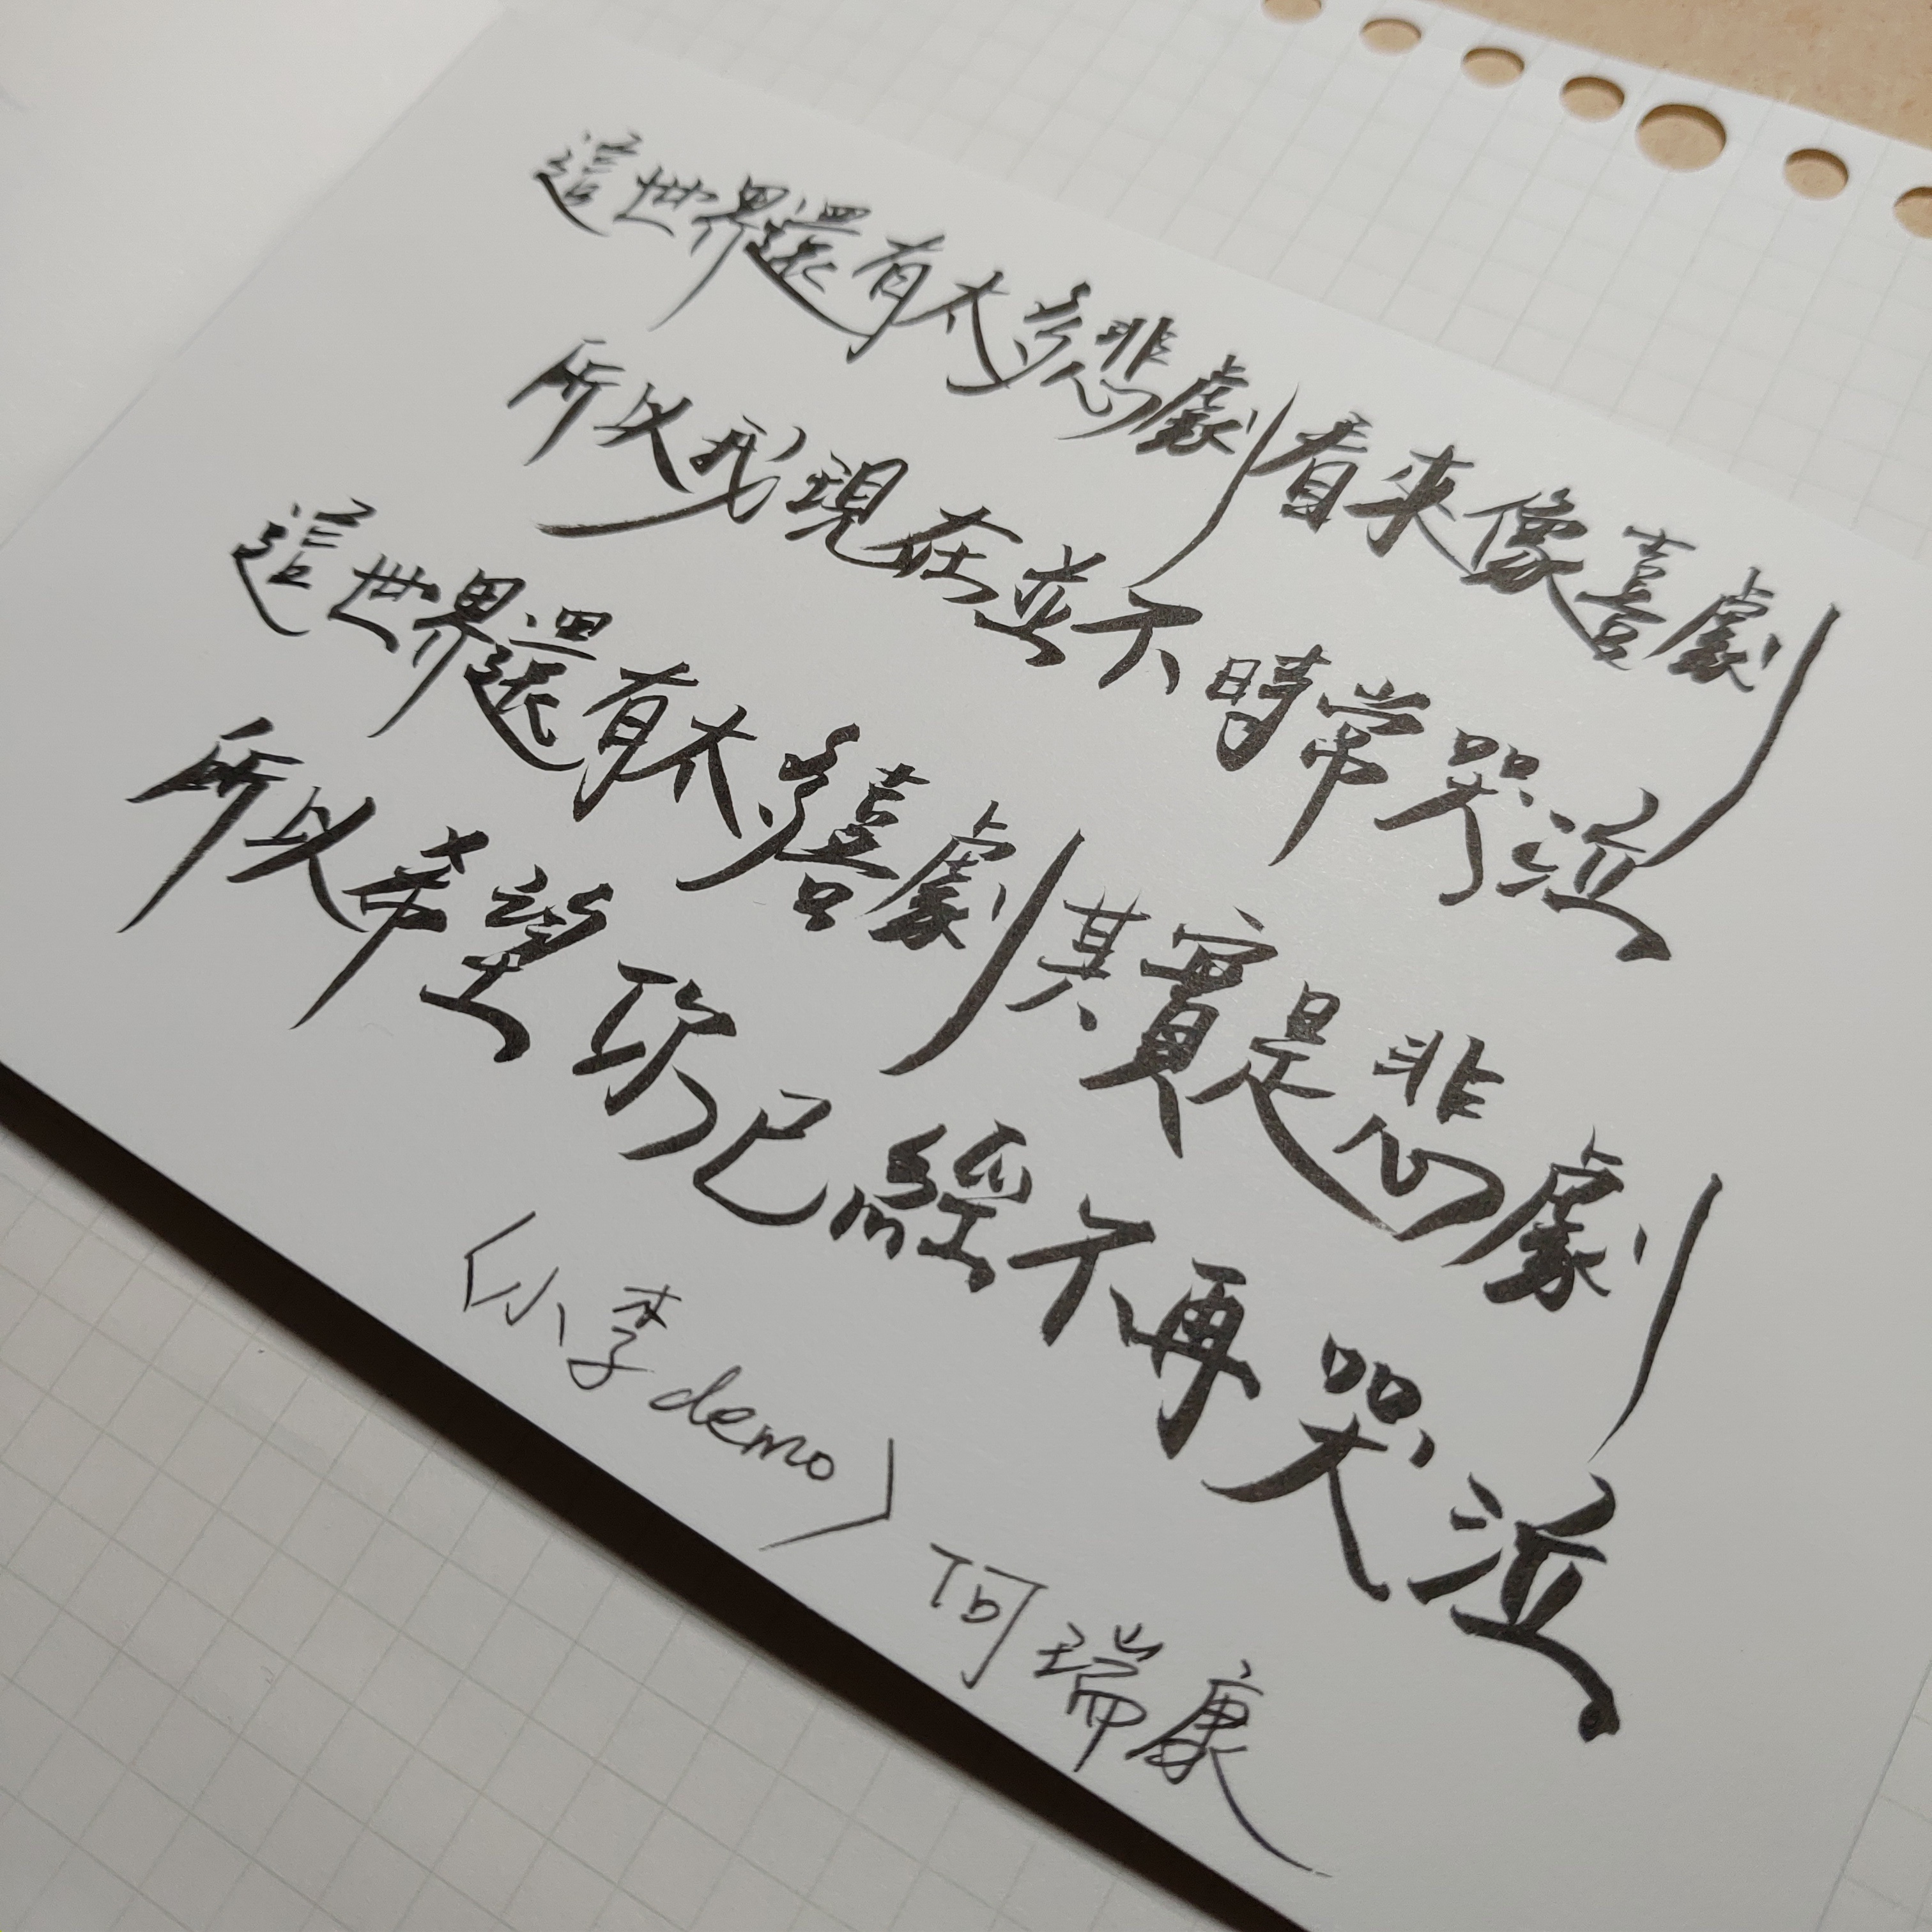 這世界還有太多悲劇看來像喜劇
所以我現在並不時常哭泣
這世界還有太多喜劇其實是悲劇
所以希望你已經不再哭泣
〈小李demo〉 何瑞康